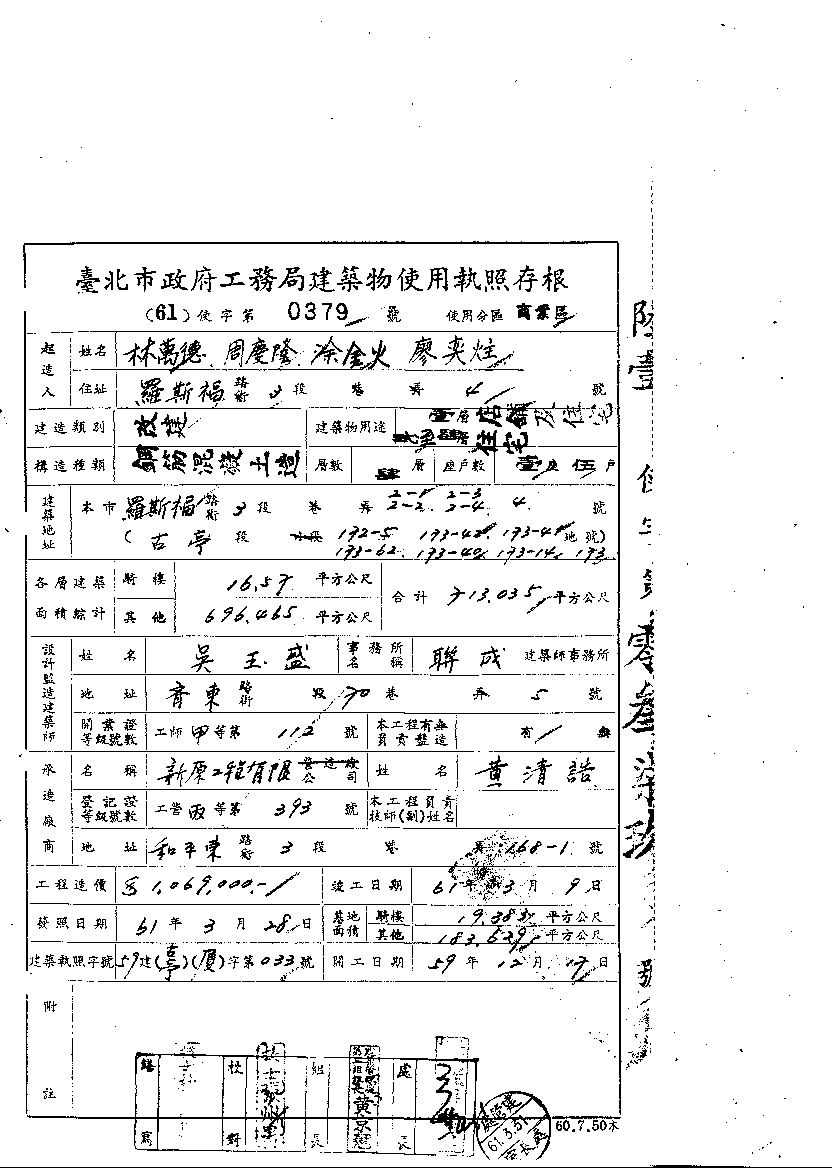 臺北市政府工務局建築物使用執照存根
(61)使字第 0379 號 使用分區 商業區
起造人 姓名 林萬德 周慶隆 涂金火 廖奕炷
住址 羅斯福路街 3段 巷 弄 4 號
建造類別 改建 建築物用途 壹層店鋪及住宅 住宅
構造種類 鋼筋混凝土造 層數 肆層 座戶數 壹座伍戶
建築地址 本市羅斯福路街 3段 巷 弄 2-1 2-3 2-2 2-4 4 號
(古亭段 小段 172-5 193-42 193-41 地號)
193-62 193-40 193-14 193
各層建築面積綜計 騎樓 16.57 平方公尺 合計 713.035 平方公尺
其他 696.465 平方公尺
設計監造建築師 姓名 吳玉盛 事務所名稱 聯成 建築師事務所
地址 齊東路街 段 70 巷 弄 5 號
開業證等級號數 工師甲等第 112 號 本工程有無負責監造 有 無
承造廠商 名稱 新原工程有限營造廠公司 姓名 黃清誥
登記證等級號數 工營丙等第 393 號 本工程負責技師(副)姓名
地址 和平東路街 3段 巷 弄 168-1 號
工程造價 1,069,000.- 竣工日期 61年3月9日
發照日期 61年3月28日 基地面積 騎樓 19.383 平方公尺
其他 183.629 平方公尺
建築執照字號 59建(亭)(厦)字第033號 開工日期 59年12月17日
附註
繕寫 校對 組長 黃宗 處長
61.3.31
60.7.50本
陸壹 使字第零叁柒玖號